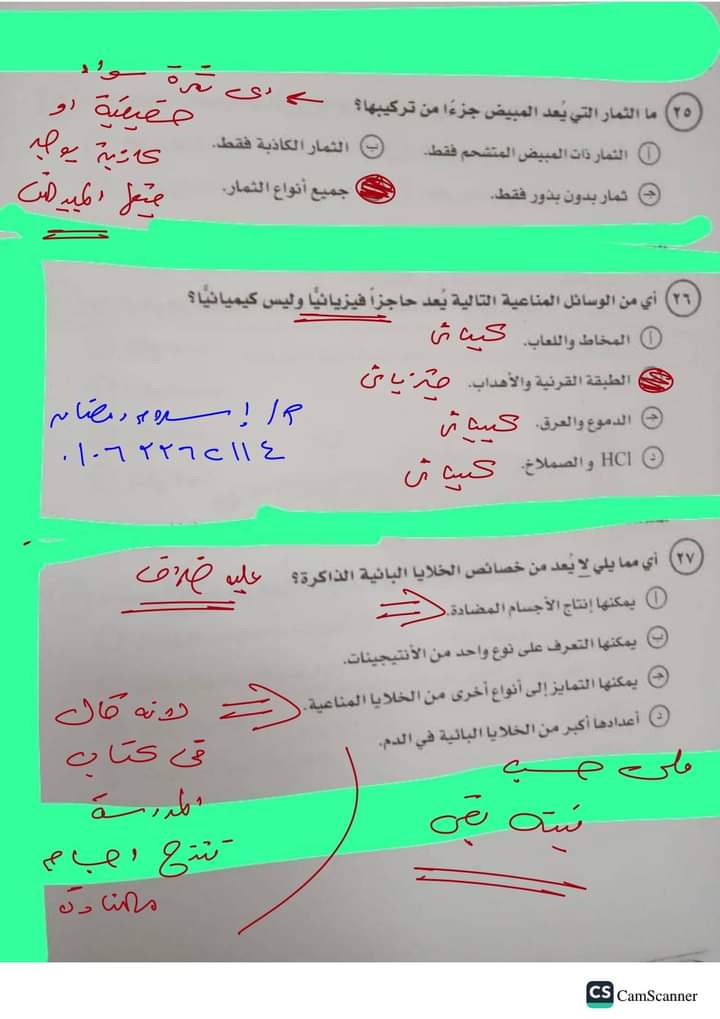 ٢٥ ما الثمار التي يُعد المبيض جزءًا من تركيبها؟
أ الثمار ذات المبيض المتشحم فقط.
ب الثمار الكاذبة فقط.
ج ثمار بدون بذور فقط.
جميع أنواع الثمار.
اى ثمرة سواء
حقيقية او
كاذبة يوجد
فيها المبيض
٢٦ أي من الوسائل المناعية التالية يُعد حاجزاً فيزيائيًّا وليس كيميائيًّا؟
أ المخاط واللعاب. كيميائى
الطبقة القرنية والأهداب. فيزيائى
ج الدموع والعرق. كيميائى
د HCl والصملاخ. كيميائى
م/ إسلام رمضان
٠١٠٦٢٢٦٢١١٤
٢٧ أي مما يلي لا يُعد من خصائص الخلايا البائية الذاكرة؟ عليه خلاف
أ يمكنها إنتاج الأجسام المضادة.
ب يمكنها التعرف على نوع واحد من الأنتيجينات.
ج يمكنها التمايز إلى أنواع أخرى من الخلايا المناعية.
د أعدادها أكبر من الخلايا البائية في الدم.
لانه قال
فى كتاب
المدرسة
تنتج اجسام
مضادة
على حسب
نيته بقى
CS CamScanner